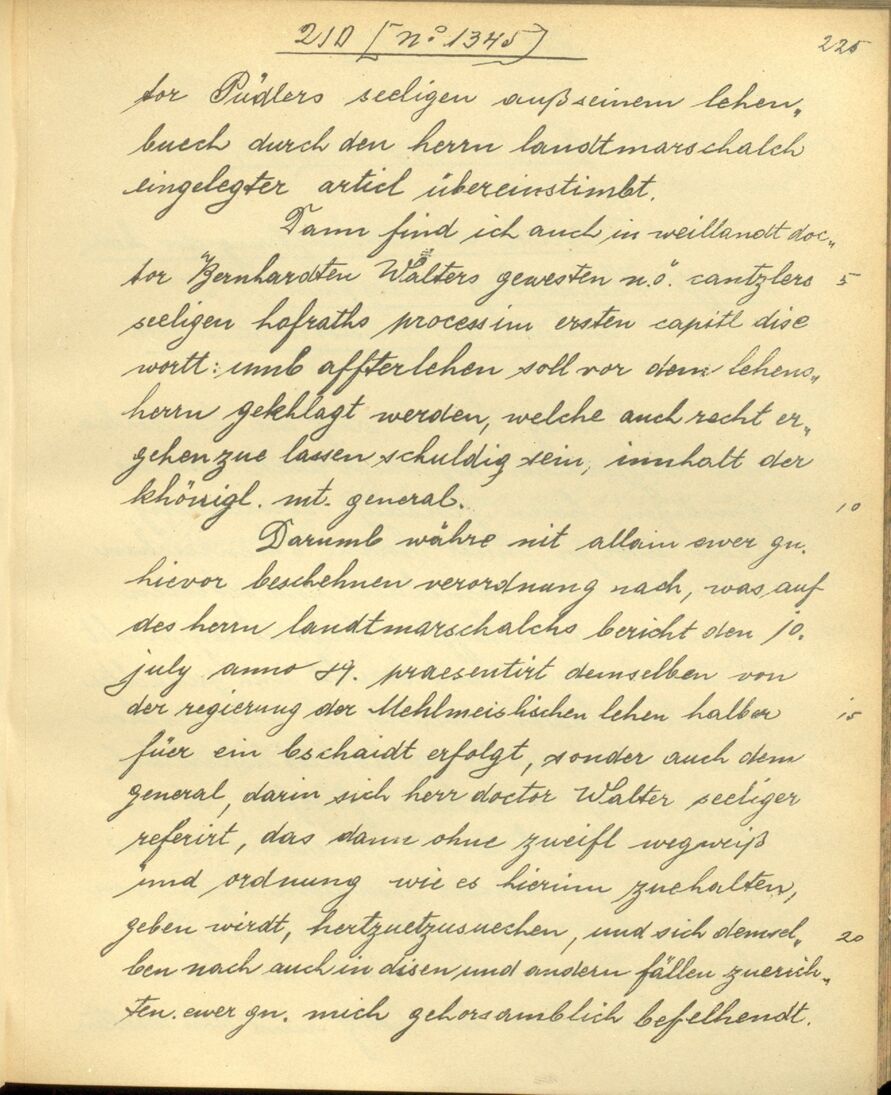 21D [no 1345]
225
tor Püdlers seeligen außseinem lehen„
buech durch den herrn landtmarschalch
eingelegter articl übereinstimbt.
Dann find ich auch in weillandt doc„
tor Bernhardten Walters gewesten n.ö. cantzlers 5
seeligen hofraths process im ersten capitl dise
wortt: umb affterlehen soll vor dem lehens„
herrn gekhlagt werden, welche auch recht er„
gehen zue lassen schuldig sein, innhalt der
khönigl. mt. general. 10
Darumb währe nit allain ewer gn.
hievor beschehnen verordnung nach, was auf
des herrn landtmarschalchs bericht den 10.
july anno 89. praesentirt demselben von
der regierung der Mehlmeislischen lehen halber 15
füer ein bschaidt erfolgt, sonder auch dem
general, darin sich herr doctor Walter seeliger
referirt, das dann ohne zweifl wegweiß
und ordnung wie es hierinn zuehalten,
geben wirdt, hertzuetzusuechen, und sich demsel„ 20
ben nach auch in disen und andern fällen zuerich„
ten. ewer gn. mich gehorsamblich befelhendt.